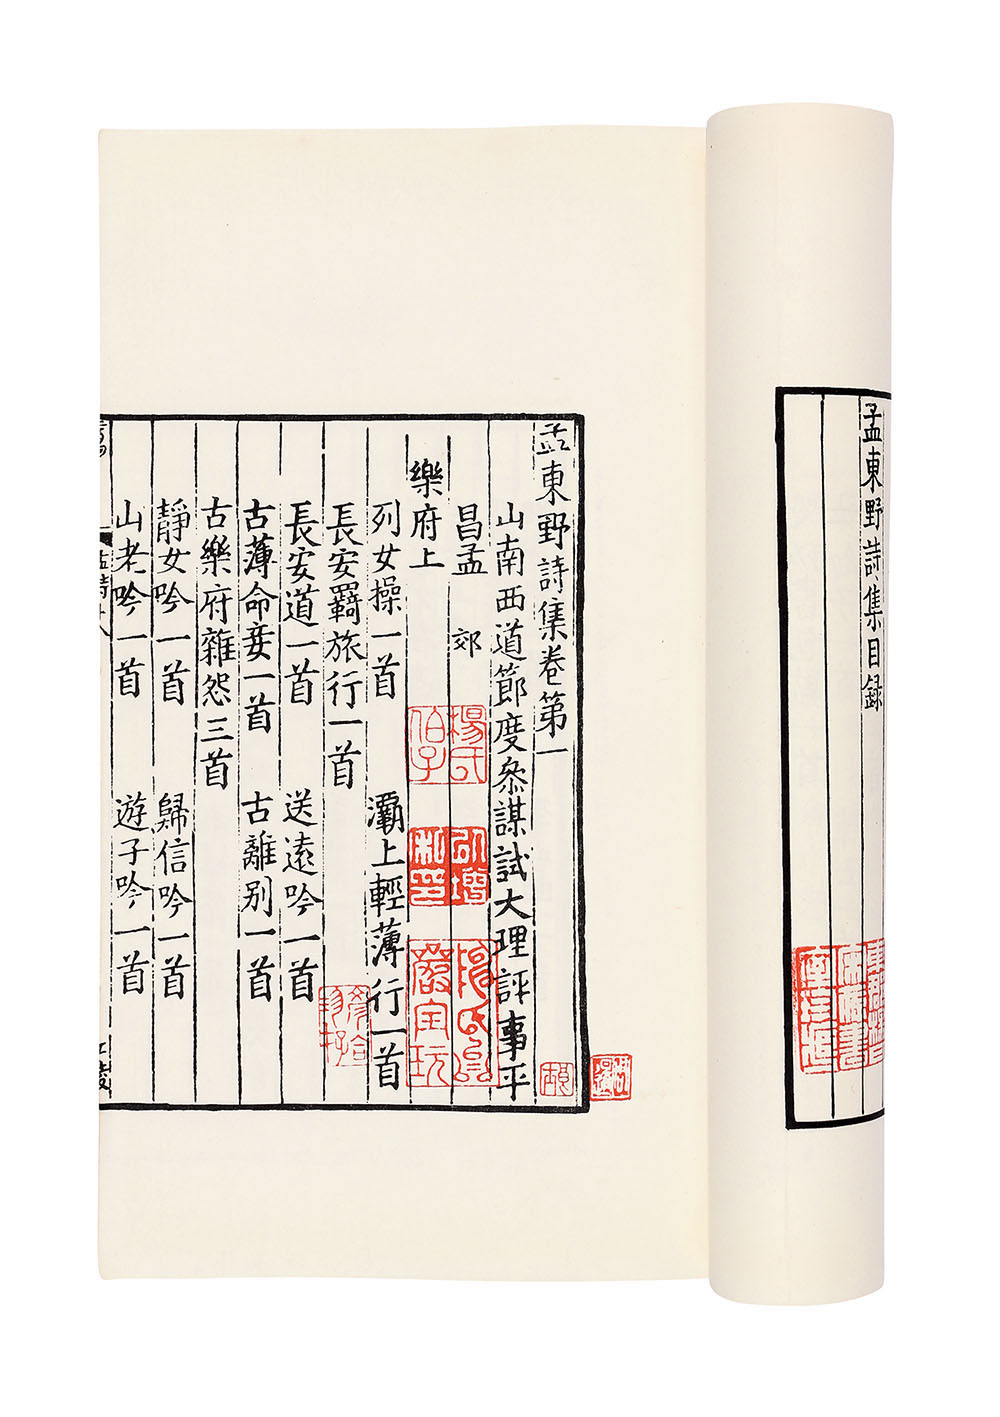 孟東野詩集目録
孟東野詩集卷第一
山南西道節度叅謀試大理評事平
昌孟　郊
樂府上
列女操一首　灞上輕薄行一首
長安羇旅行一首
長安道一首　送遠吟一首
古薄命妾一首　古離别一首
古樂府雜怨三首
靜女吟一首　歸信吟一首
山老吟一首　遊子吟一首
楊氏
伯子